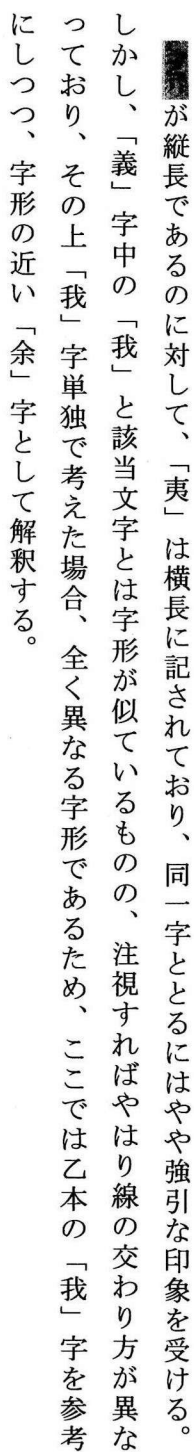 が縦長であるのに対して、「夷」は横長に記されており、同一字ととるにはやや強引な印象を受ける。
しかし、「義」字中の「我」と該当文字とは字形が似ているものの、注視すればやはり線の交わり方が異な
っており、その上「我」字単独で考えた場合、全く異なる字形であるため、ここでは乙本の「我」字を参考
にしつつ、字形の近い「余」字として解釈する。